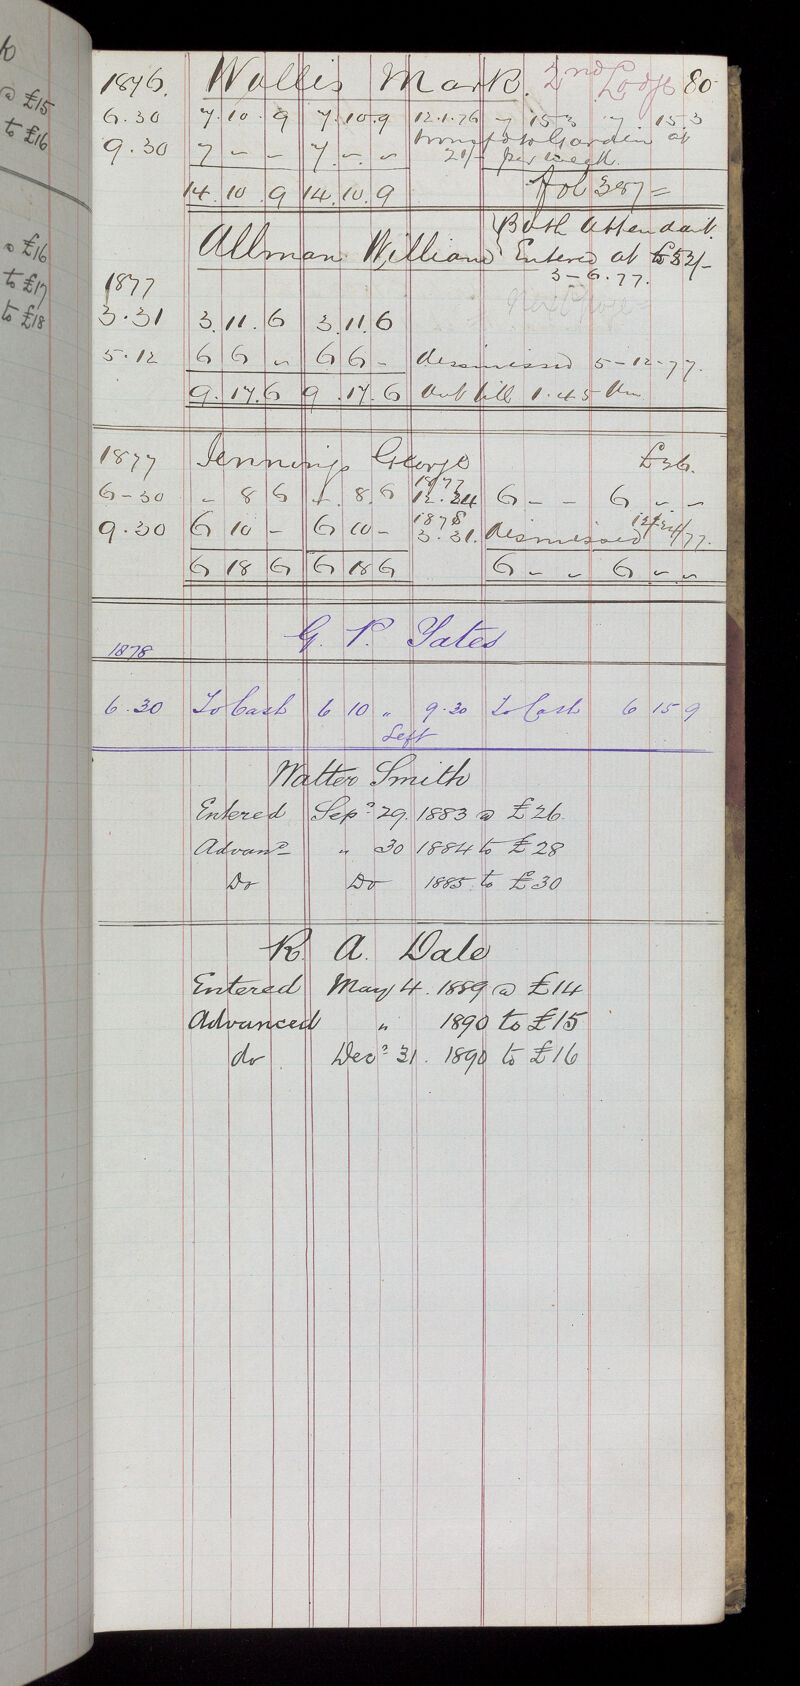 @ £15
to £16
@ £16
to £17
to £18
1876. Wallis Mark. 2nd Lodge 80
6.30 7.10.9 7.10.9 12.1.76 7 15 3 7 15 3
transfd to Garden at
9.30 7 - - 7 - - 21/- per week.
14.10.9 14.10.9 fol 387 =
Bath Attendant.
Allman William Entered at £52/-
3-6.77.
1877
Next Page
3.31 3.11.6 3.11.6
5.12 6 6 - 6 6 - dismissed 5-12-77.
9.17.6 9.17.6
1877 Jennings George £26.
6-30 - 8 6 - 8.6 1877 12.24 6 - - 6 - -
9.30 6 10 - 6 10 - 1878 3.31. dismissed 12/24/77.
6 18 6 6 18 6 6 - - 6 - -
G. P. Yates
1878
6.30 To Cash 6 10 " 9.30 To Cash 6 15 9
Left
Walter Smith
Entered Sepr 29. 1883 @ £26.
Advand " 30 1884 to £28
Do Do 1885. to £30
R. A. Dale
Entered May 4. 1889 @ £14
Advanced " 1890 to £15
do Decr 31. 1890 to £16